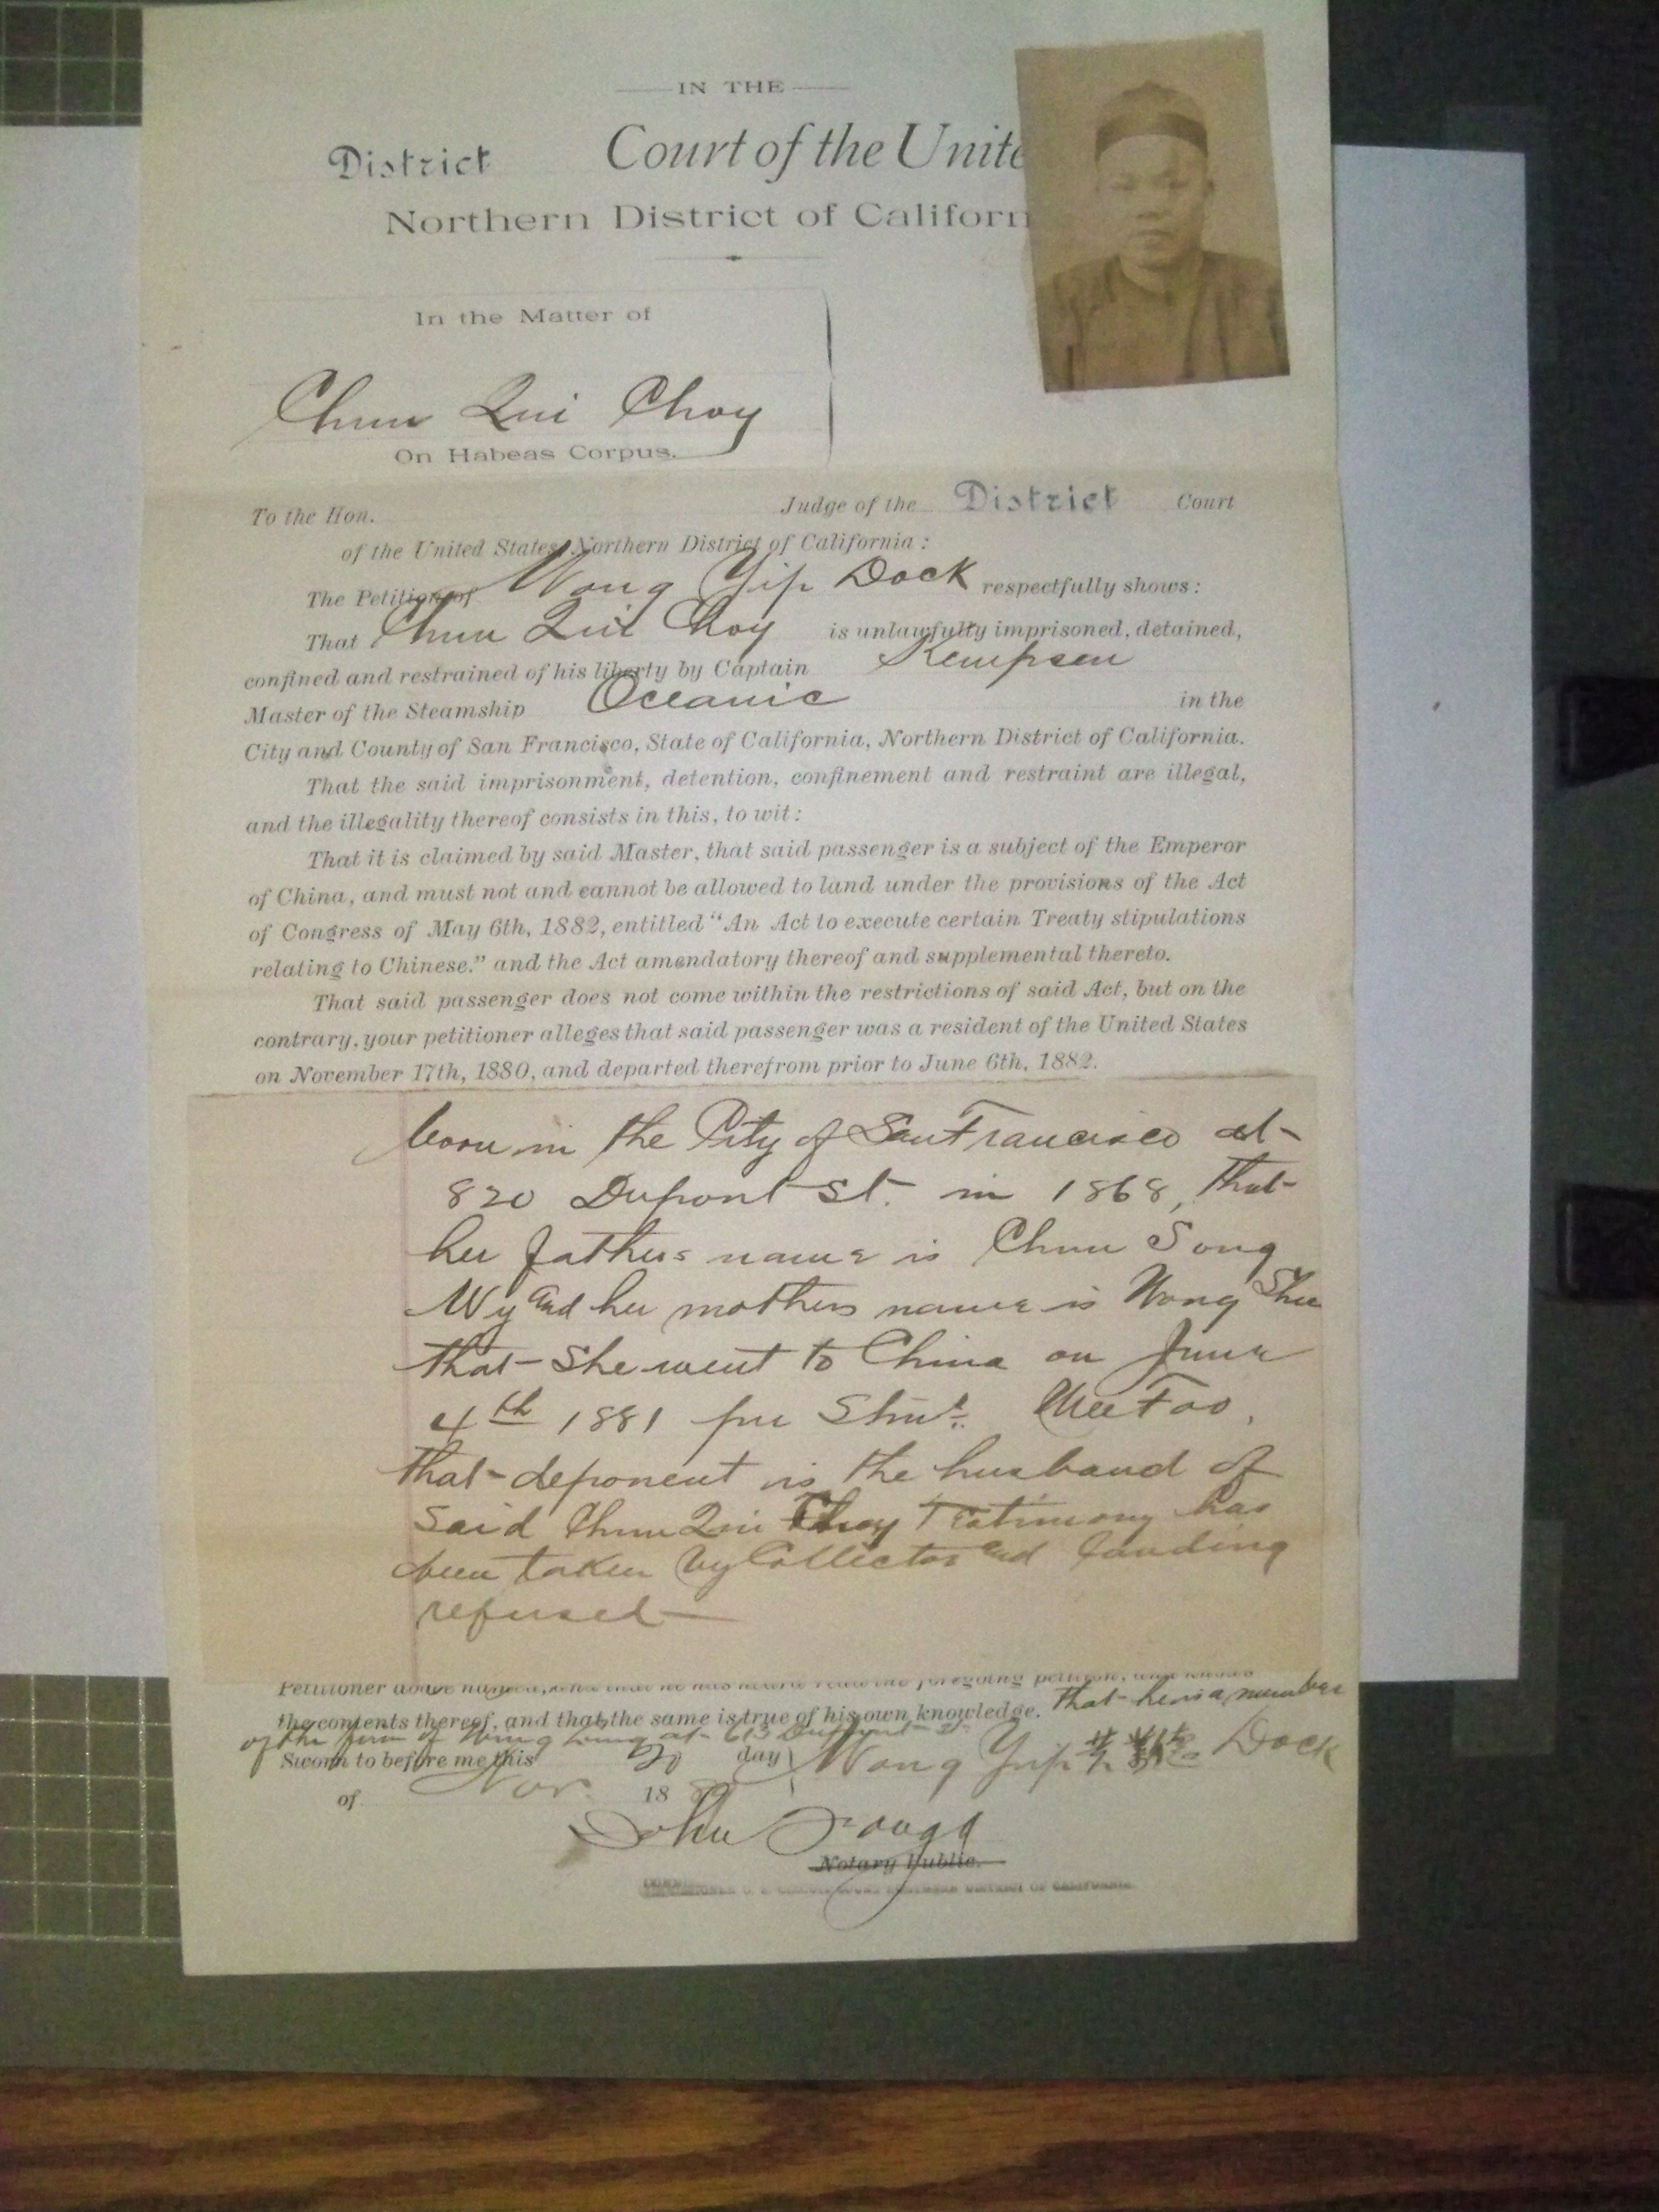 IN THE
District Court of the Unite
Northern District of Californ
In the Matter of
Chun Qui Choy
On Habeas Corpus.
To the Hon. Judge of the District Court
of the United States, Northern District of California:
The Petition of Wong Yip Dock respectfully shows:
That Chun Qui Choy is unlawfully imprisoned, detained,
confined and restrained of his liberty by Captain Kempsen
Master of the Steamship Oceanic in the
City and County of San Francisco, State of California, Northern District of California.
That the said imprisonment, detention, confinement and restraint are illegal,
and the illegality thereof consists in this, to wit:
That it is claimed by said Master, that said passenger is a subject of the Emperor
of China, and must not and cannot be allowed to land under the provisions of the Act
of Congress of May 6th, 1882, entitled "An Act to execute certain Treaty stipulations
relating to Chinese." and the Act amendatory thereof and supplemental thereto.
That said passenger does not come within the restrictions of said Act, but on the
contrary, your petitioner alleges that said passenger was a resident of the United States
on November 17th, 1880, and departed therefrom prior to June 6th, 1882.
born in the City of San Francisco at
820 Dupont St. in 1868, That
her fathers name is Chun Song
Wy and her mothers name is Wong Shee
that she went to China on June
4th 1881 per Stmr.
that deponent is the husband of
Said Chun Qui Choy Testimony has
been taken by Collector and landing
refused
Petitioner above named, and that he has heard read the foregoing petition, and knows
the contents thereof, and that the same is true of his own knowledge. That he is a member
of the firm of at 613 Dupont St.
Sworn to before me this 20 day Wong Yip Dock
of Nov. 18
John Fouga
Notary Public.
COMMISSIONER U. S. CIRCUIT COURT NORTHERN DISTRICT OF CALIFORNIA